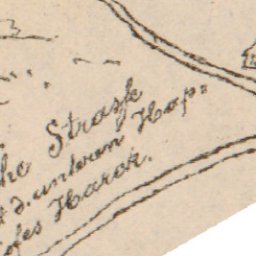 he Straße
d. unteren Hop=
ofes Harok.